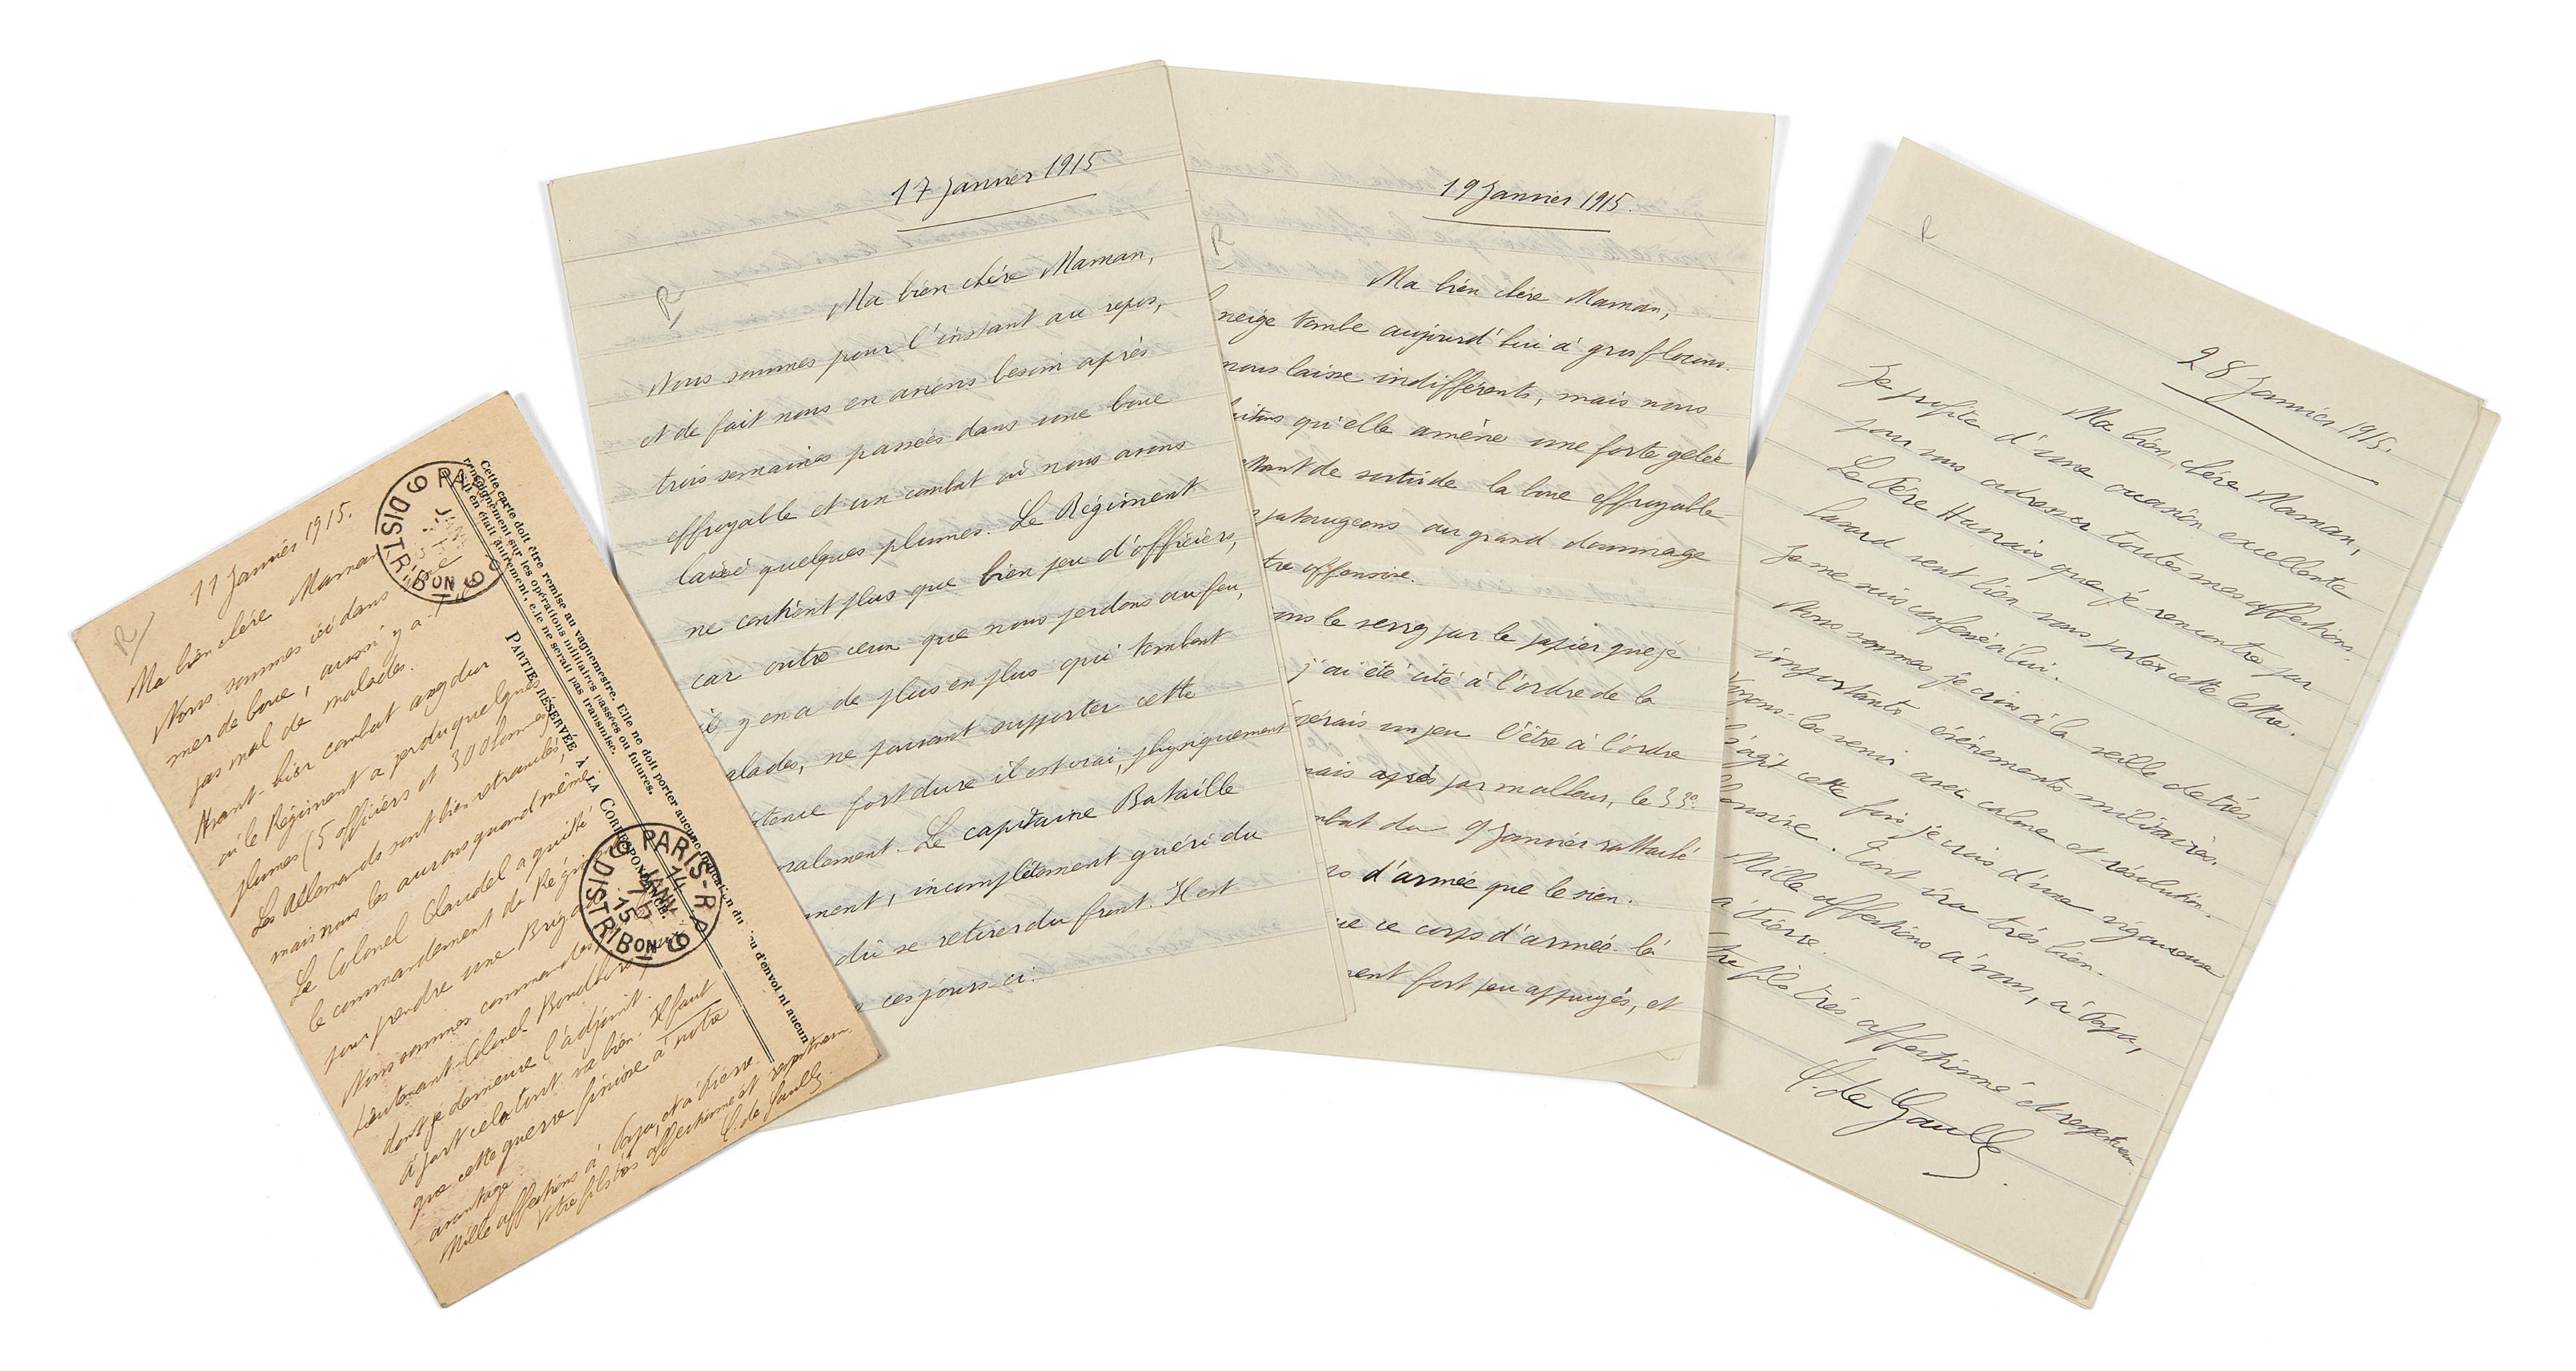 11 Janvier 1915.
Ma bien chère Maman,
Nous sommes ici dans une
mer de boue, aussi y a-t-il
pas mal de malades.
Avant-hier combat assez dur
où le Régiment a perdu quelques
plumes (5 officiers et 300 hommes)
Les Allemands sont bien retranchés,
mais nous les aurons quand même
Le Colonel Claudel a quitté
le commandement du Régiment
pour prendre une Brigade
Nous sommes commandés
Lieutenant-Colonel Boud'hors
dont je demeure l'adjoint.
A part cela tout va bien. Il faut
que cette guerre finisse à notre
avantage
Mille affections à Papa, et à Pierre.
Votre fils très affectionné et respectueux
C. de Gaulle
Cette carte doit être remise au vaguemestre. Elle ne doit porter aucune indication du lieu d'envoi ni aucun
renseignement sur les opérations militaires passées ou futures.
S'il en était autrement, elle ne serait pas transmise.
PARTIE RÉSERVÉE À LA CORRESPONDANCE.
DISTRIBON
PARIS-R.P
JANV
15
DISTRIBON
R
17 Janvier 1915
Ma bien chère Maman,
Nous sommes pour l'instant au repos,
et de fait nous en avions besoin après
trois semaines passées dans une boue
effroyable et un combat où nous avons
laissé quelques plumes. Le Régiment
ne contient plus que bien peu d'officiers,
car outre ceux que nous perdons au feu,
il y en a de plus en plus qui tombent
alades, ne pouvant supporter cette
stence fort dure il est vrai, physiquement
oralement. Le capitaine Bataille
ment, incomplètement guéri du
dû se retirer du front. Il est
ces jours-ci.
R
19 Janvier 1915.
Ma bien chère Maman,
neige tombe aujourd'hui à gros flocons.
nous laisse indifférents, mais nous
aitons qu'elle amène une forte gelée
ttant de sortir de la boue effroyable
pataugeons au grand dommage
tre offensive.
ons le verrez par le papier que je
j'ai été cité à l'ordre de la
pérais un peu l'être à l'ordre
mais après par malheur, le 33e
mbat du 9 Janvier rattaché
ps d'armée que le sien.
ue ce corps d'armée là
ment fort peu appuyés, et
R
28 Janvier 1915.
Ma bien chère Maman,
Je profite d'une occasion excellente
pour vous adresser toutes mes affections.
Le Père Hurais que je rencontre par
hasard veut bien vous porter cette lettre.
Je me suis confessé à lui.
Nous sommes je crois à la veille de très
importants événements militaires.
Voyons-les venir avec calme et résolution.
s'agit cette fois je crois d'une vigoureuse
fensive. Tout ira très bien.
Mille affections à vous, à Papa,
à Pierre.
tre fils très affectionné et respectueux
C. de Gaulle